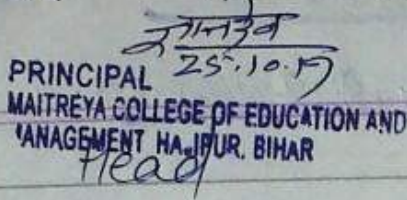 25.10.17
PRINCIPAL
MAITREYA COLLEGE OF EDUCATION AND
MANAGEMENT HAJIPUR. BIHAR
Head